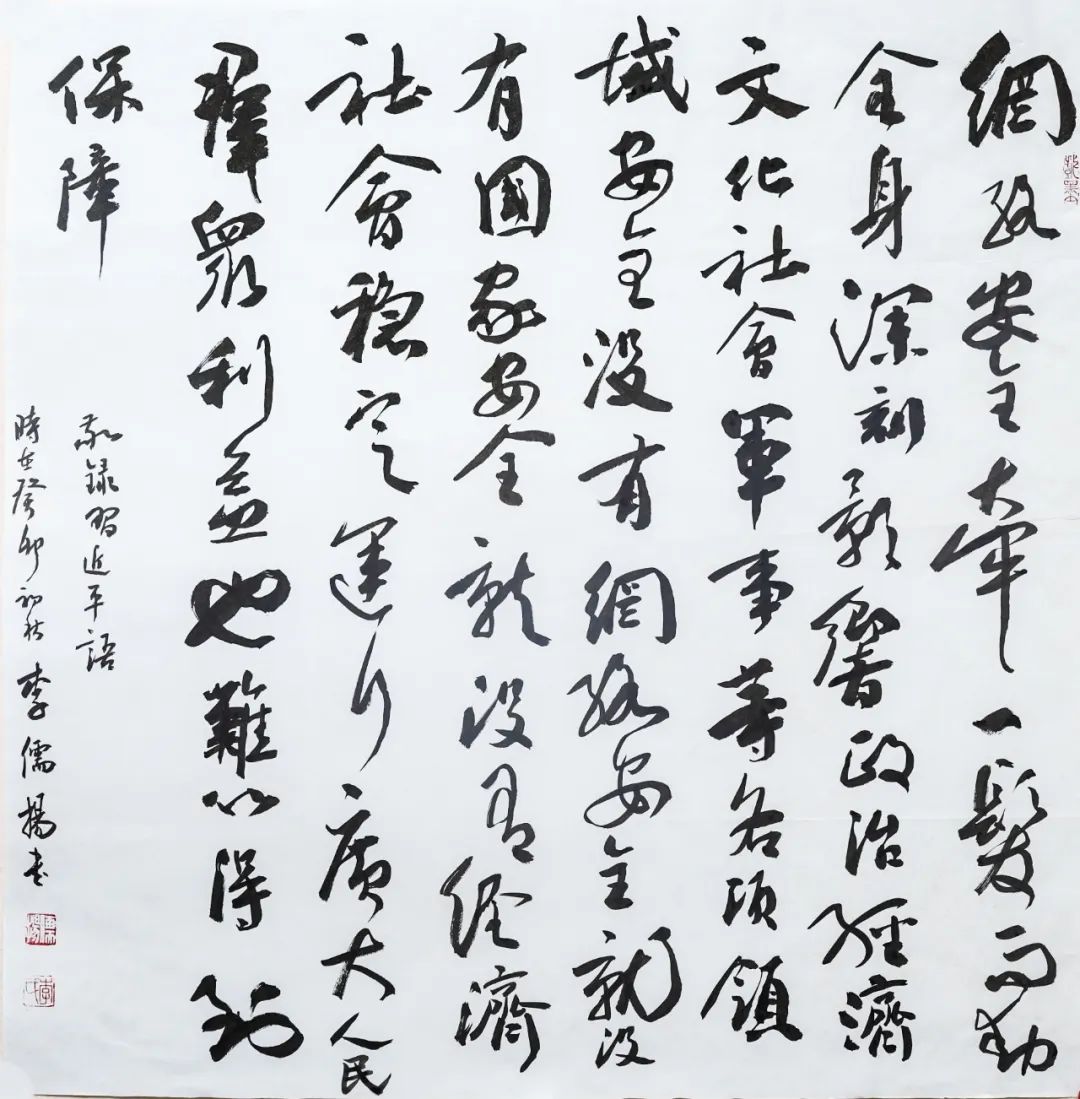 網絡安全牵一髮而動
全身深刻影響政治經濟
文化社會軍事等各項領
域安全沒有網絡安全就沒
有國家安全就沒有經濟
社會穩定運行廣大人民
羣眾利益也難以得到
保障
敬録習近平語
時在癸卯初秋李儒揚書